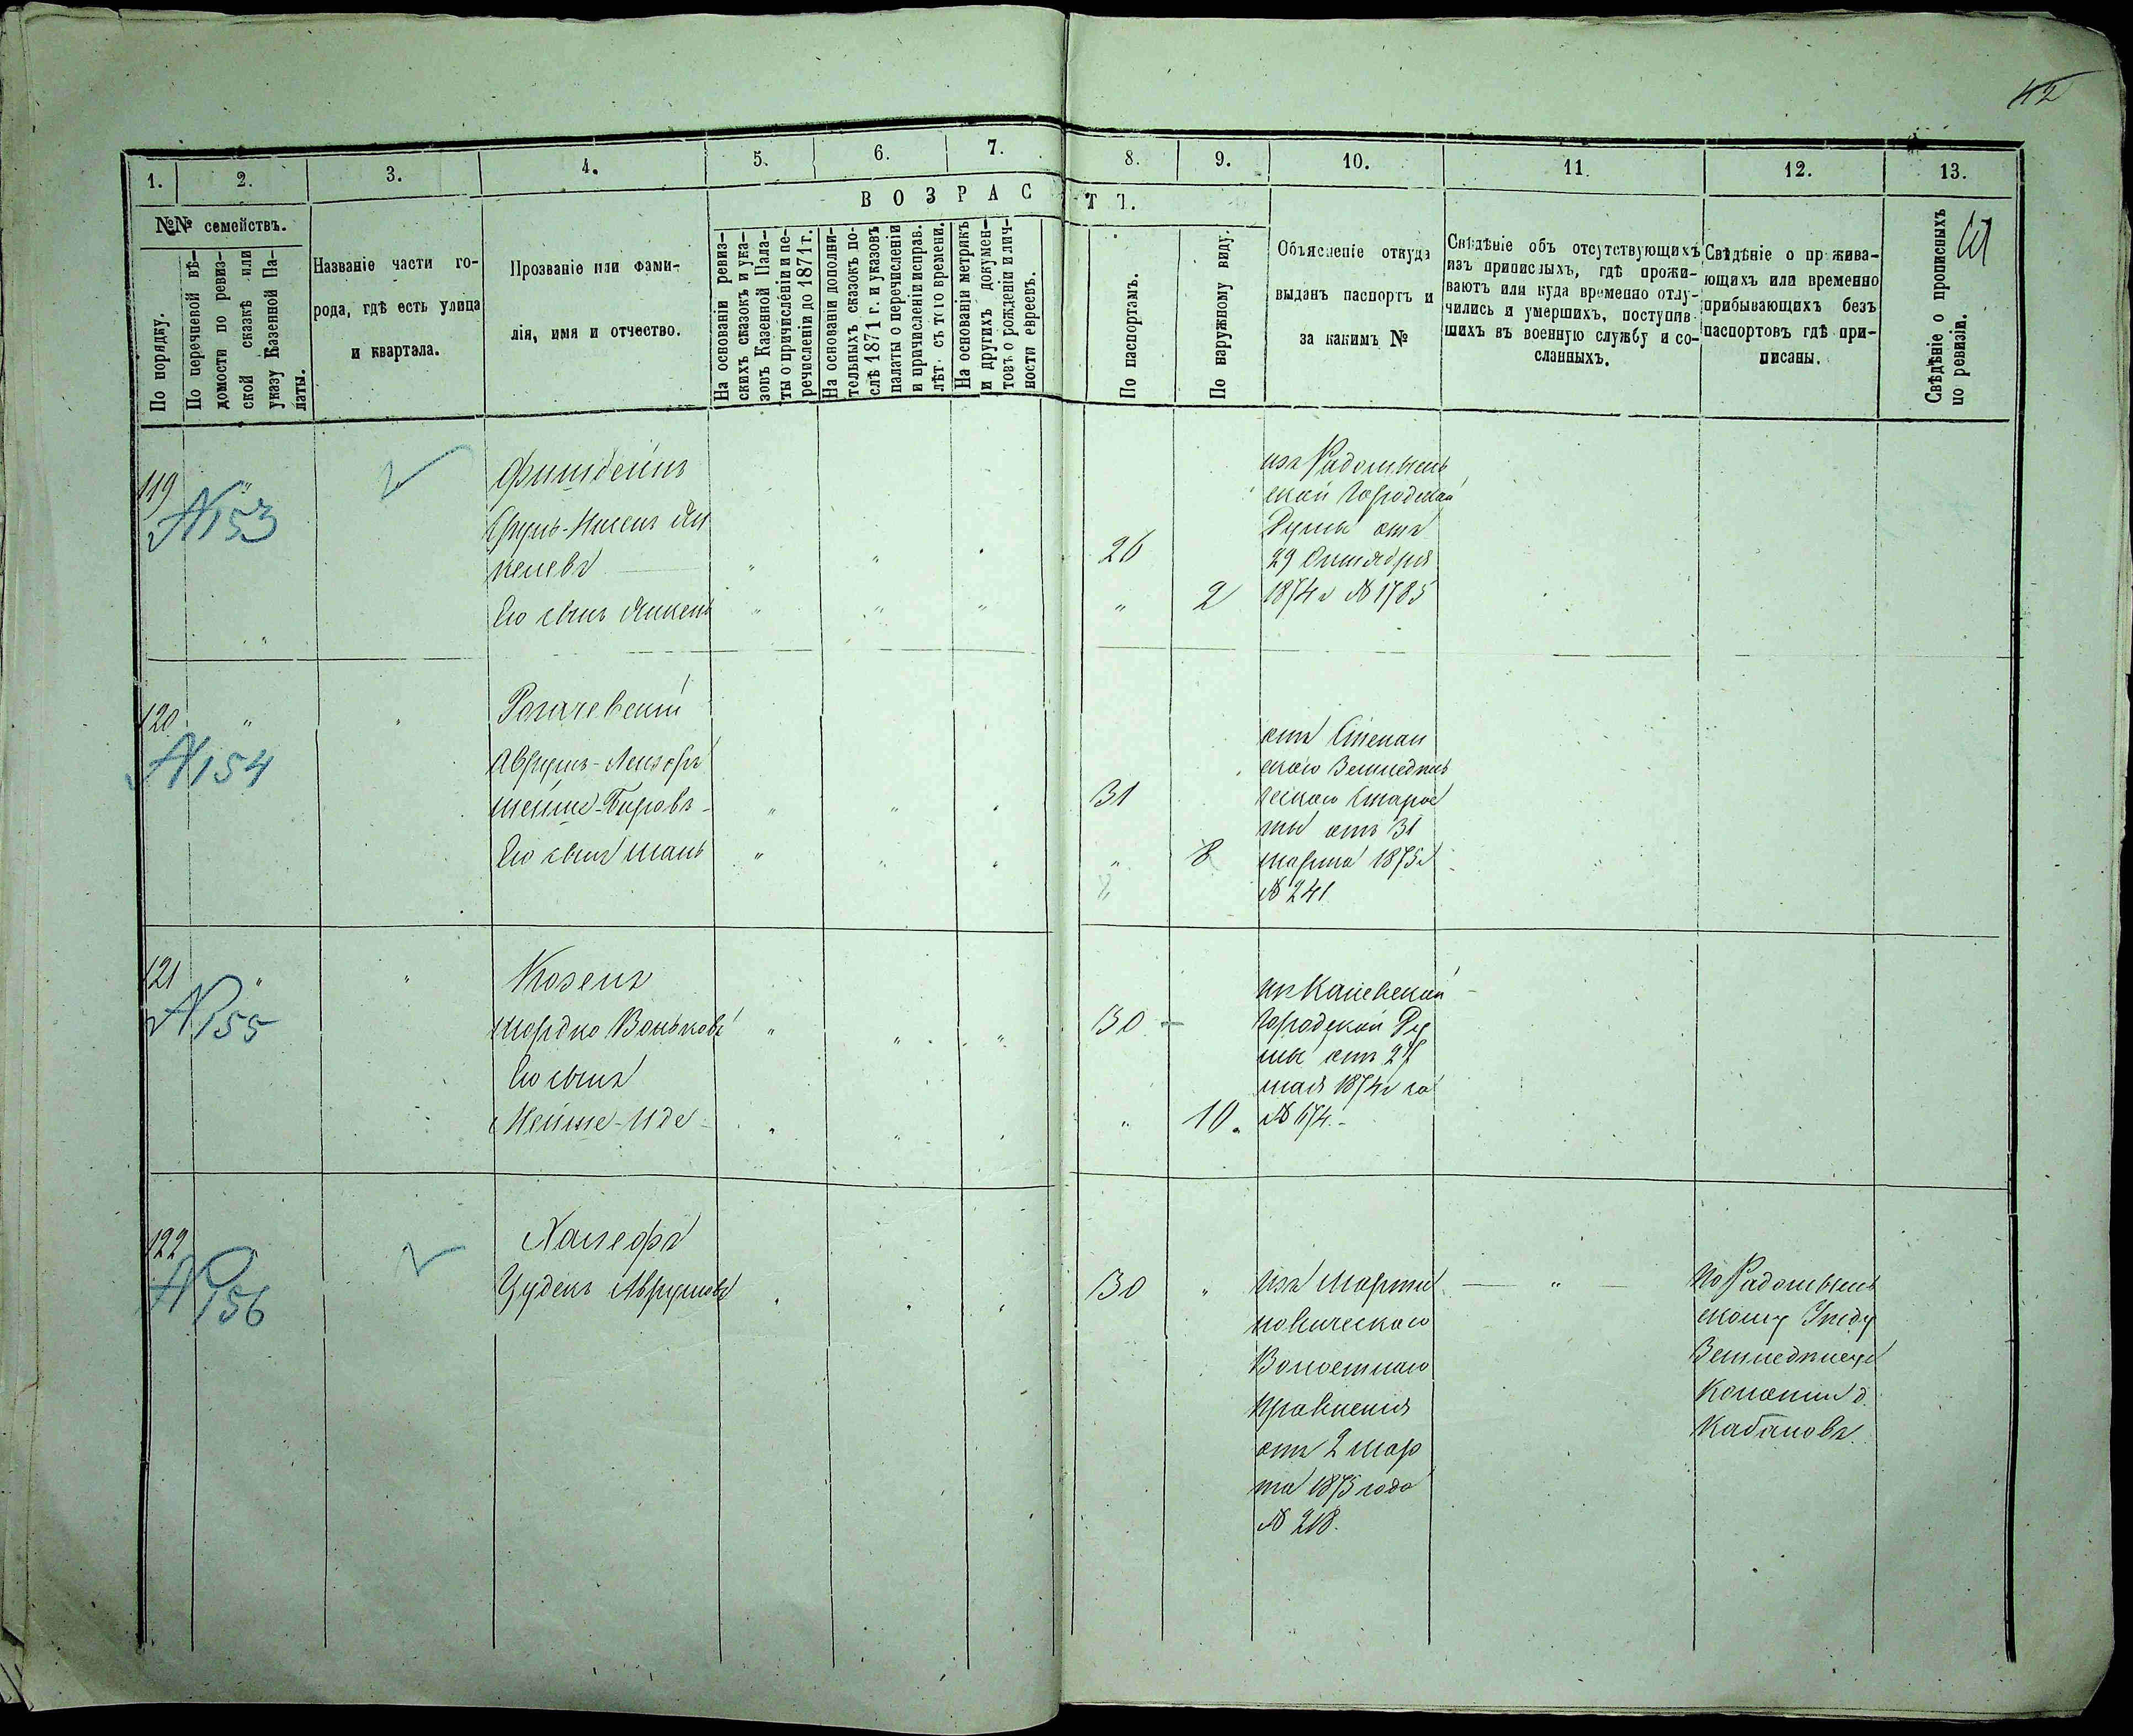 42
1.
2.
3.
4.
5.
6.
7.
8.
9.
10.
11.
12.
13.
ВОЗРАСТЪ.
№№ семействъ.
По порядку.
По перечневой вѣ-
домости по ревиз-
ской сказкѣ или
указу Казенной Па-
латы.
Названіе части го-
рода, гдѣ есть улица
и квартала.
Прозваніе или фами-
лія, имя и отчество.
На основаніи ревиз-
скихъ сказокъ и ука-
зовъ Казенной Пала-
ты о причисленіи и пе-
речисленіи до 1871 г.
На основаніи дополни-
тельныхъ сказокъ по-
слѣ 1871 г. и указовъ
палаты о перечисленіи
и причисленіи исправ.
лѣт. съ того времени.
На основаніи метрикъ
и другихъ докумен-
товъ о рожденіи и лич-
ности евреевъ.
По паспортамъ.
По наружному виду.
Объясненіе откуда
выданъ паспортъ и
за какимъ №
Свѣдѣніе объ отсутствующихъ
изъ приписныхъ, гдѣ прожи-
ваютъ или куда временно отлу-
чились и умершихъ, поступив-
шихъ въ военную службу и со-
сланныхъ.
Свѣдѣніе о прожива-
ющихъ или временно
прибывающихъ безъ
паспортовъ гдѣ при-
писаны.
Свѣдѣніе о прописныхъ
по ревизіи.
119
№153
Фишбейнъ
Сруль-Нисенъ Ян
келевъ
26
Его сынъ Янкель
2
изъ Радомысль
ской Городской
Думы отъ
29 Октября
1874 г № 1785
120
№154
Рогачевскій
Аврумъ-Лейзоръ
Шейме-Беровъ
31
Его сынъ
8
отъ
скаго Земледѣль
ческаго Старос
ты отъ 31
марта 1875 г
№ 241
121
№155
Козелъ
Мордко Вольковъ
30
Его сынъ
Мейше-Иде
10.
из Каневской
Городской Ду
мы отъ 27
мая 1874 г за
№ 674.
122
№156
Цудекъ Аврумовъ
30
Изъ Марти
новическаго
Волостнаго
Правленія
отъ 2 мар
та 1875 года
№ 218.
по Радомысль
скому Уѣзду
Земледѣльч
Колоніи д.
Кабановъ.